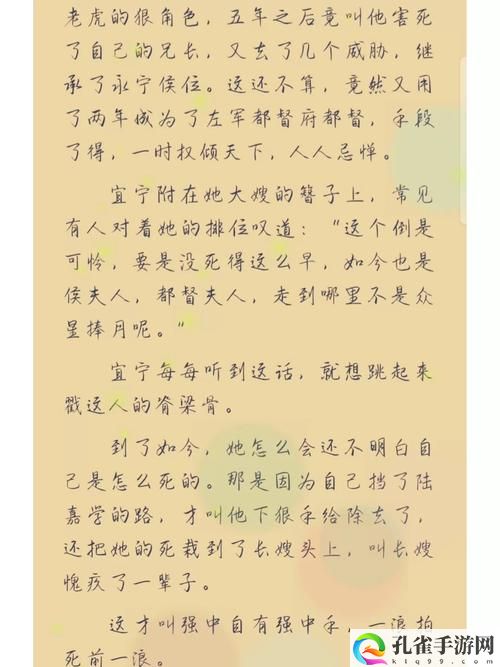 老虎的狠角色，五年之后竟叫他害死
了自己的兄长，又去了几个威胁，继
承了永宁侯位。这还不算，竟然又用
了两年成为了左军都督府都督，手段
了得，一时权倾天下，人人忌惮。
宜宁附在她大嫂的簪子上，常见
有人对着她的排位叹道："这个倒是
可怜，要是没死得这么早，如今也是
侯夫人，都督夫人，走到哪里不是众
星捧月呢。"
宜宁每每听到这话，就想跳起来
戳这人的脊梁骨。
到了如今，她怎么会还不明白自
己是怎么死的。那是因为自己挡了陆
嘉学的路，才叫他下狠手给除去了，
还把她的死栽到了长嫂头上，叫长嫂
愧疚了一辈子。
这才叫强中自有强中手，一浪拍
死前一浪。
孔雀手游网
ktq99.com